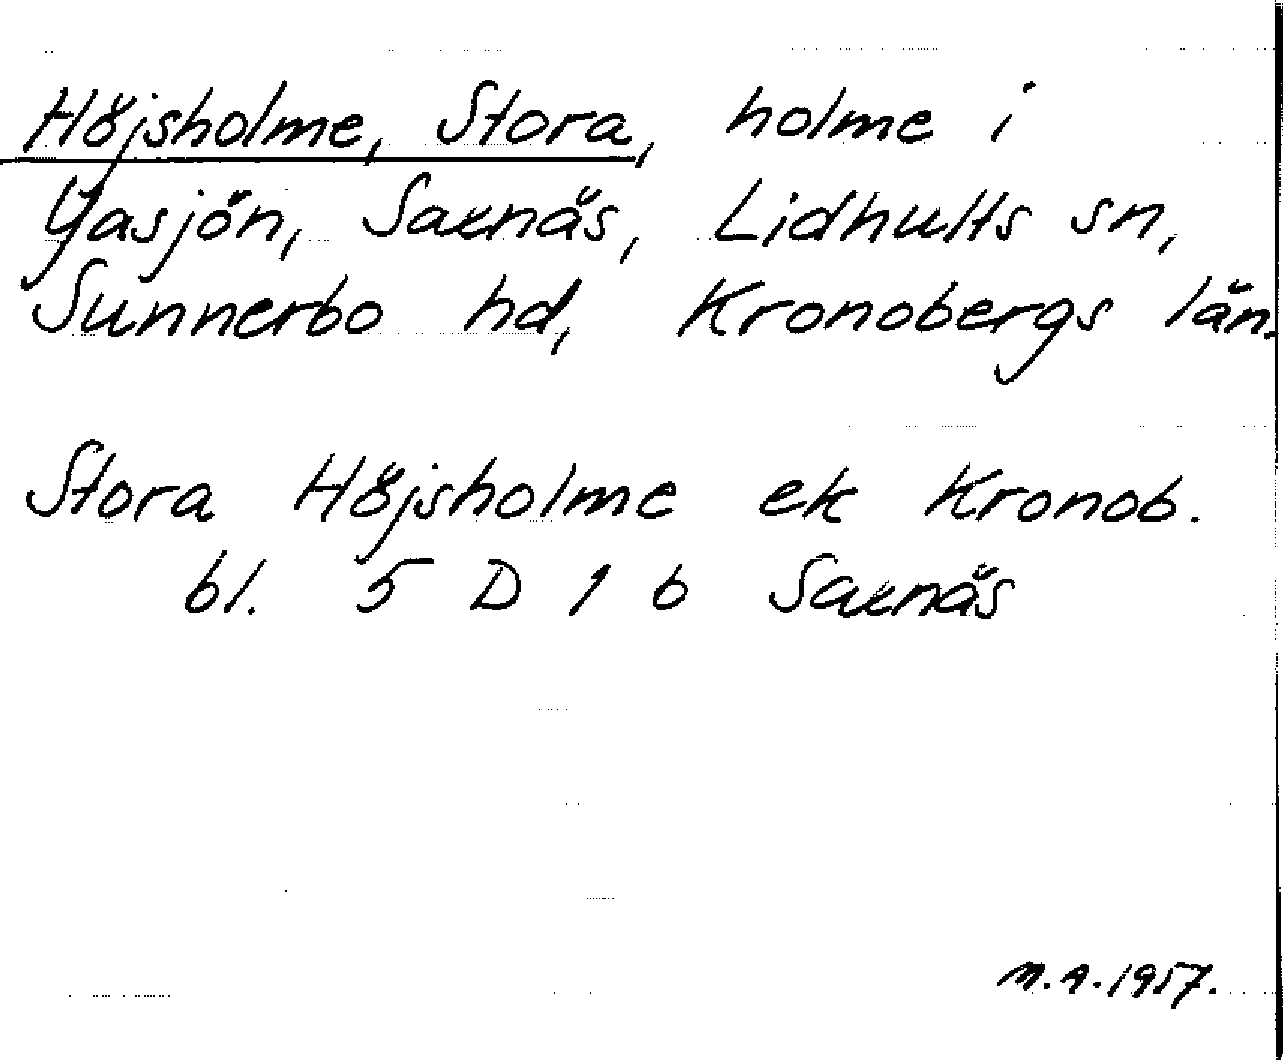 Höjsholme, Stora, holme i
Yasjön, Saxnäs, Lidhults sn,
Sunnerbo hd, Kronobergs län.
Stora Höjsholme ek Kronob.
bl. 5 D 1 b Saxnäs
M.A. 1957.